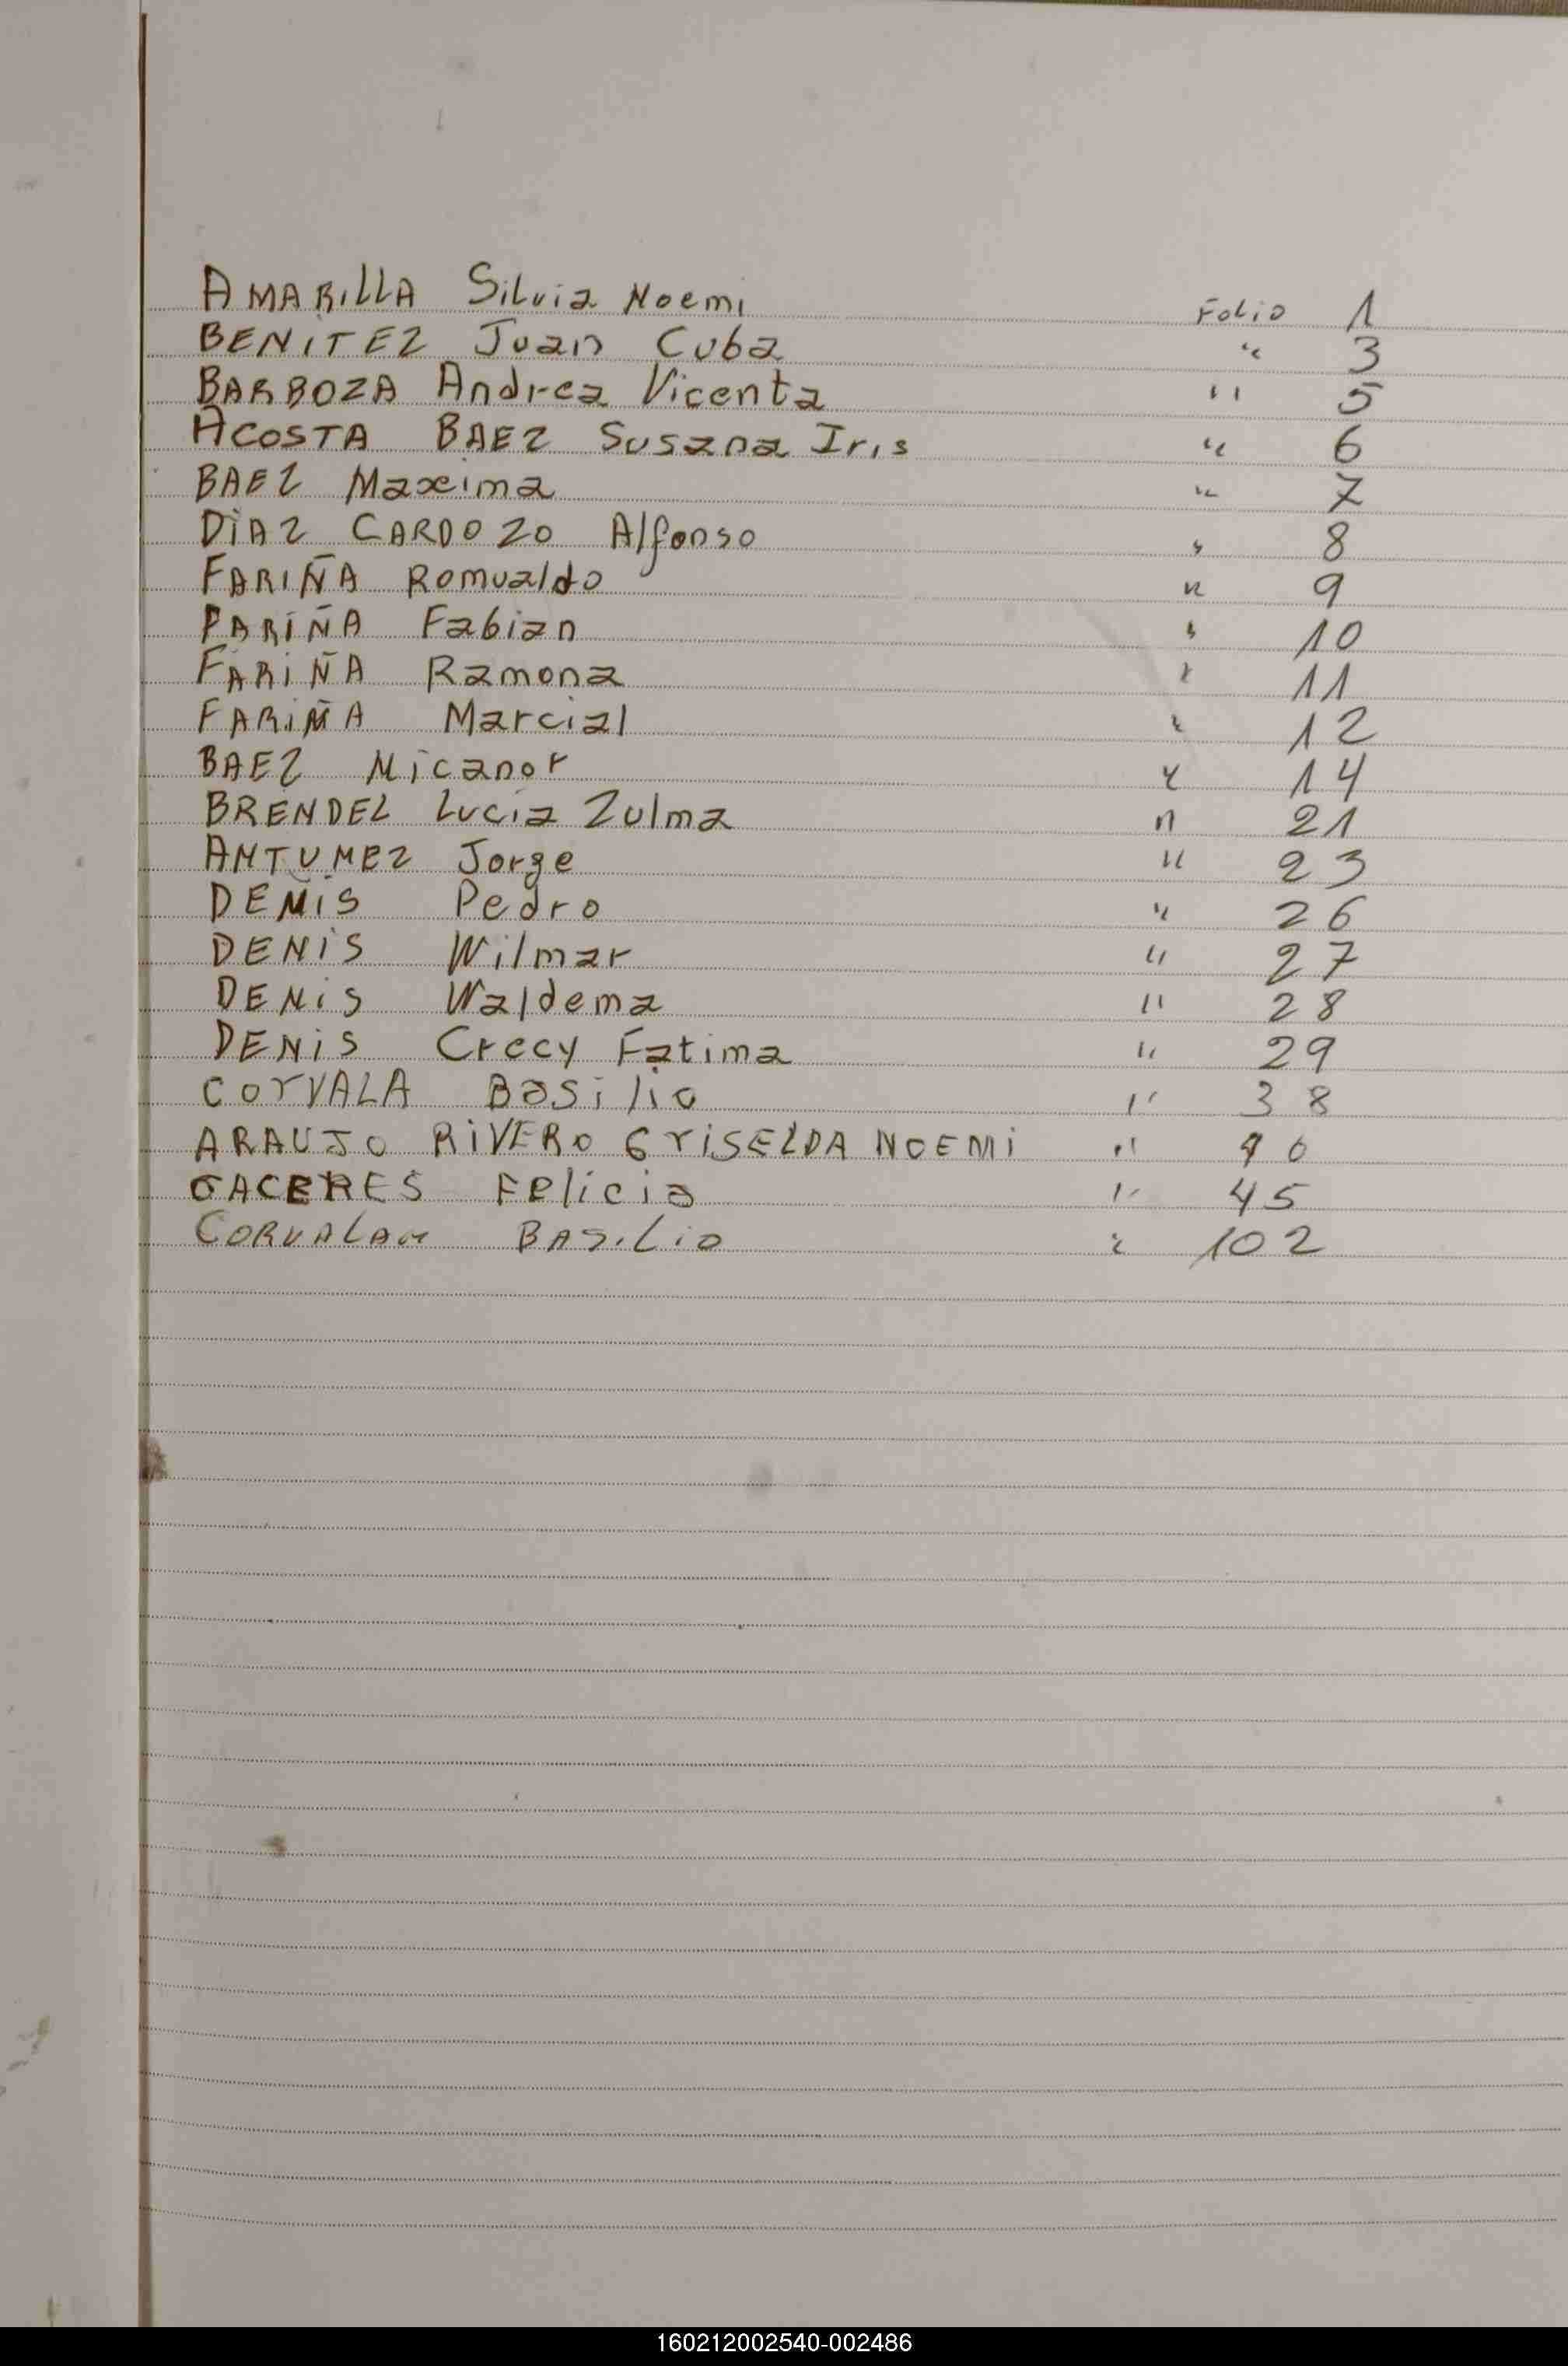 AMARILLA Silvia Noemi Folio 1
BENITEZ Juan Cuba " 3
BARBOZA Andrea Vicenta " 5
ACOSTA BAEZ Susana Iris " 6
BAEZ Maxima " 7
DIAZ CARDOZO Alfonso " 8
FARIÑA Romualdo " 9
FARIÑA Fabian " 10
FARIÑA Ramona " 11
FARIÑA Marcial " 12
BAEZ Nicanor " 14
BRENDEL Lucia Zulma " 21
ANTUNEZ Jorge " 23
DENIS Pedro " 26
DENIS Wilmar " 27
DENIS Waldema " 28
DENIS Crecy Fatima " 29
CorVALA Basilio " 38
ARAUJO RIVERO GrISELDA NOEMI "
CACERES Felicia " 45
CORVALAN BASILio " 102
160212002540-002486